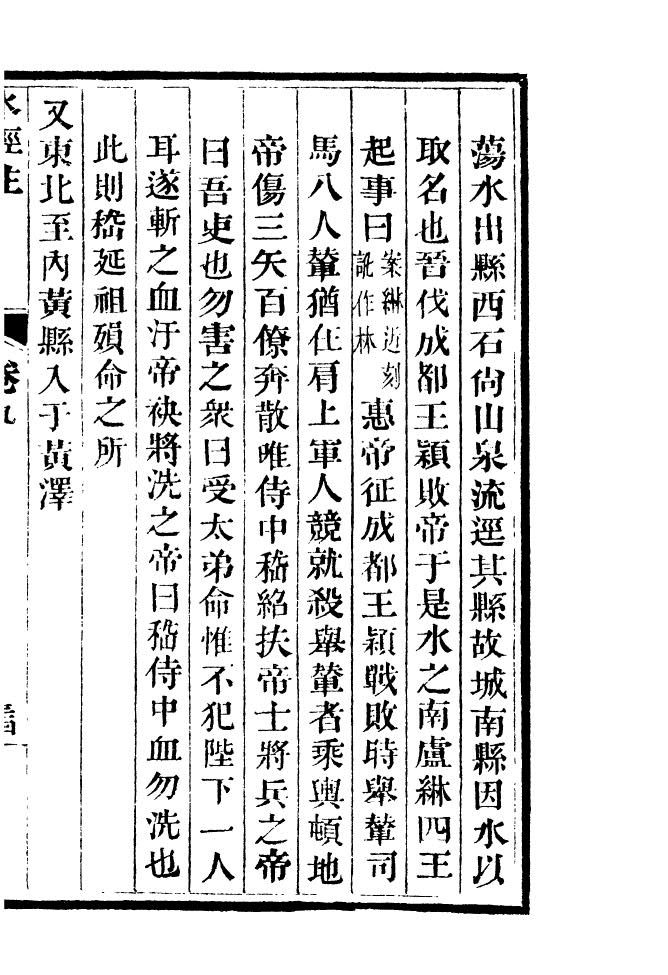 蕩水出縣西石尙山泉流逕其縣故城南縣因水以
取名也晉伐成都王穎敗帝于是水之南盧綝四王
起事曰案綝近刻訛作林惠帝征成都王穎戰敗時舉輦司
馬八人輦猶在肩上軍人競就殺舉輦者乘輿頓地
帝傷三矢百僚奔散唯侍中嵇紹扶帝士將兵之帝
曰吾吏也勿害之衆曰受太弟命惟不犯陛下一人
耳遂斬之血汙帝袂將洗之帝曰嵇侍中血勿洗也
此則嵇延祖殞命之所
又東北至內黃縣入于黃澤
水經注 卷九